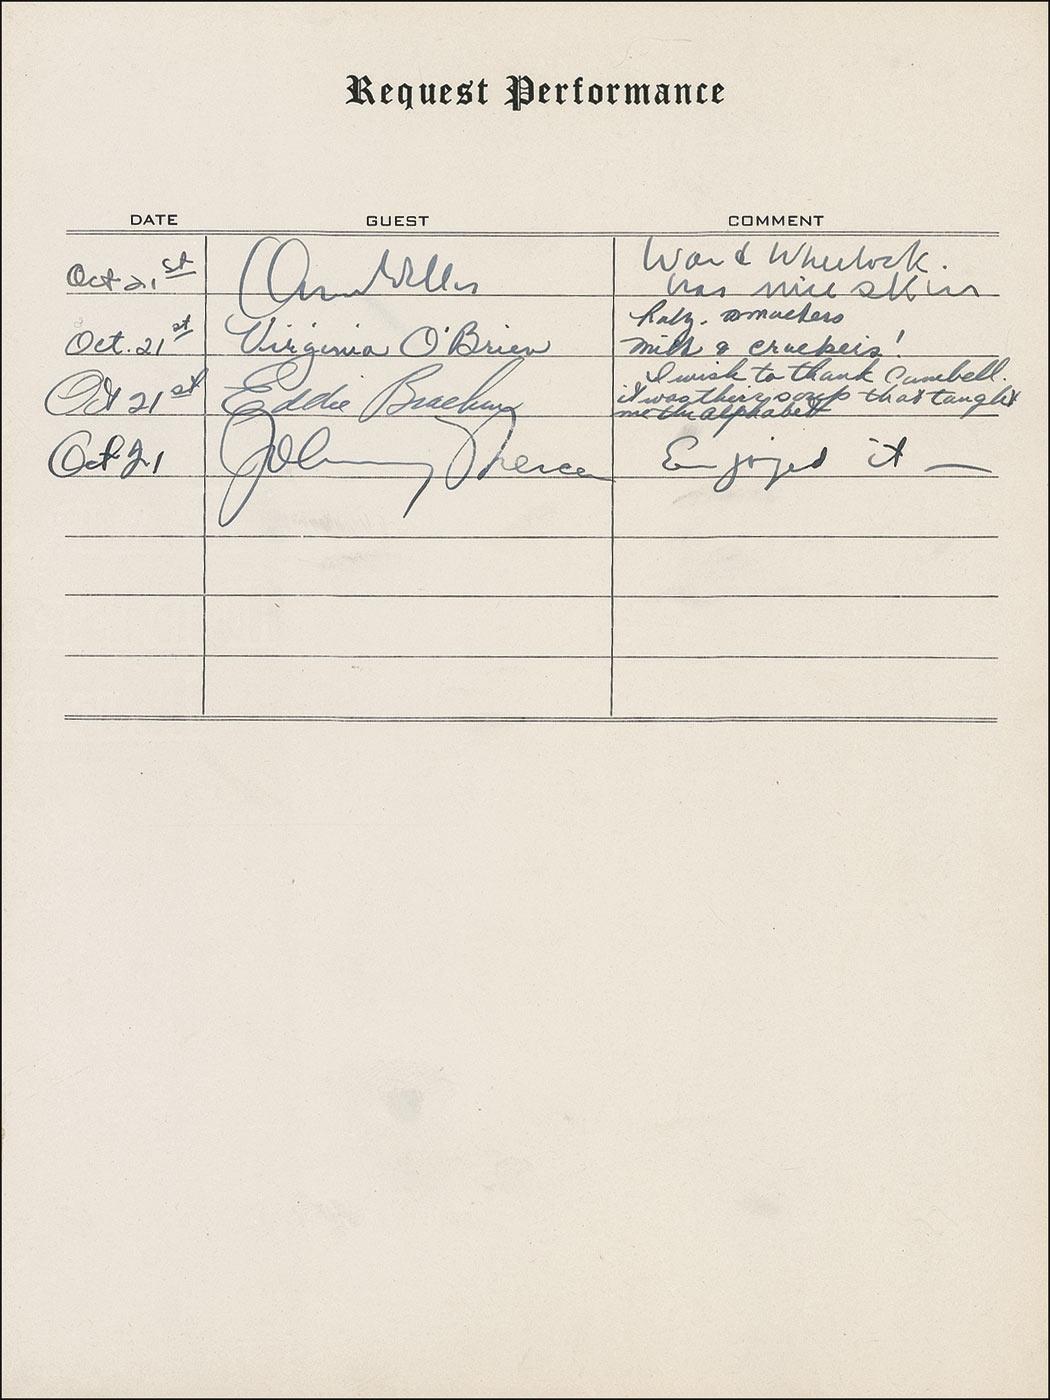 Request Performance
DATE GUEST COMMENT
Oct 21st Ann Miller Ward Wheelock.
has nice skin
smackers
Oct. 21st Virginia O'Brien milk & crackers!
I wish to thank Cambell.
Oct 21st Eddie Bracken it was soup that taught
me the alphabet
Oct 21 Johnny Mercer Enjoyed it —